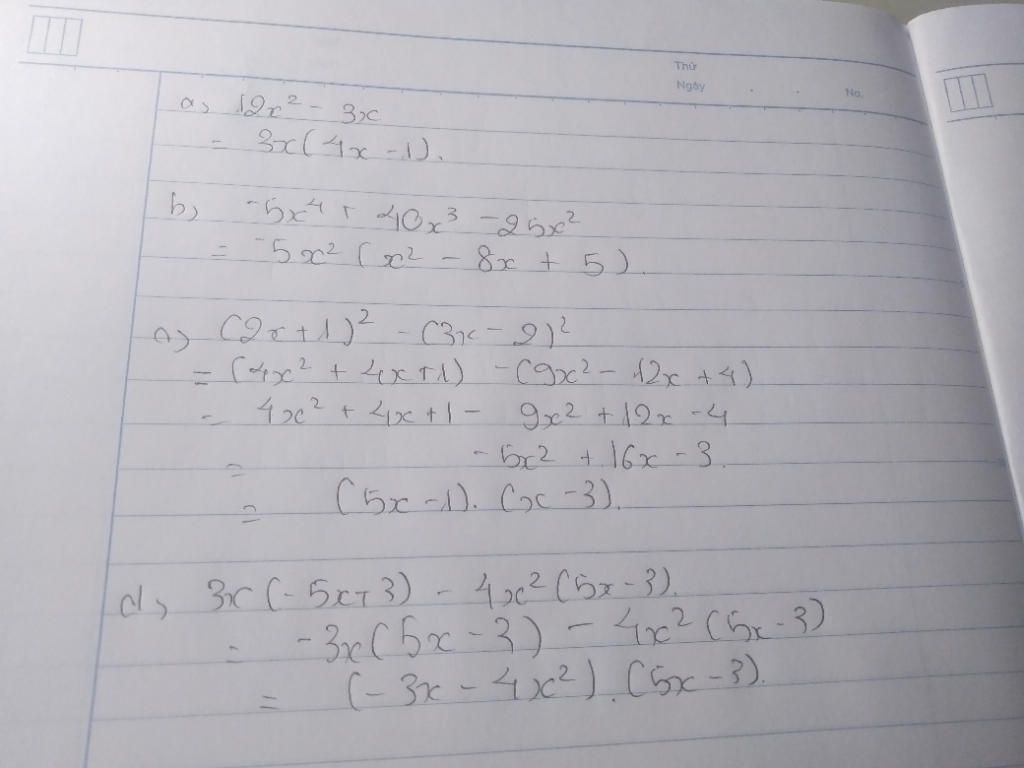 Thứ
Ngày . . No.
a, 12x² - 3x
= 3x(4x - 1).
b, -5x⁴ + 40x³ - 25x²
= -5x² (x² - 8x + 5).
c, (2x+1)² - (3x - 2)²
= (4x² + 4x+1) - (9x² - 12x + 4)
= 4x² + 4x+1 - 9x² + 12x - 4
= -5x² + 16x - 3.
= (5x - 1). (x - 3).
d, 3x(-5x+3) - 4x²(5x - 3).
= -3x(5x - 3) - 4x²(5x - 3)
= (-3x - 4x²). (5x - 3).